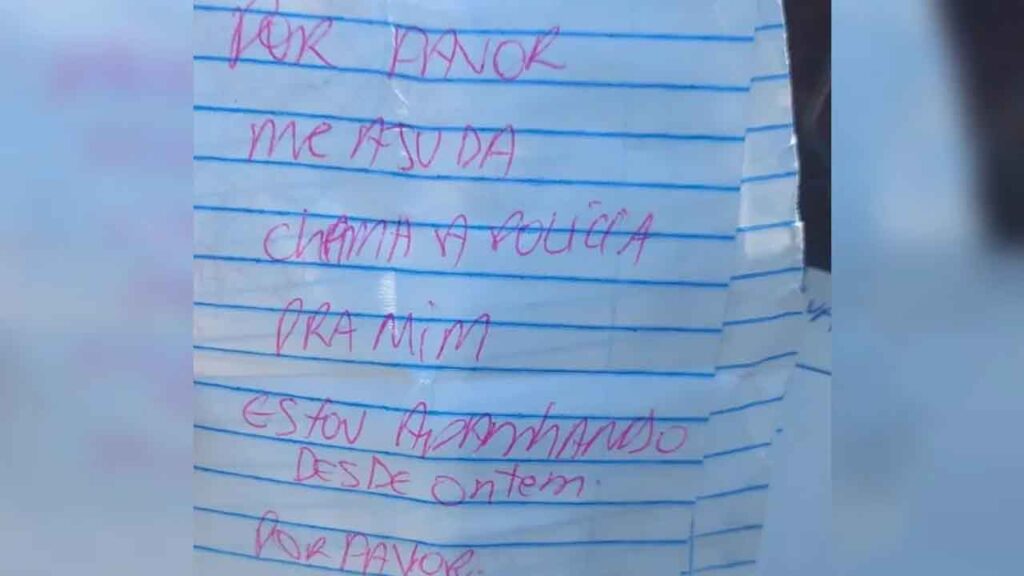 POR FAVOR
me AJUDA
ChAMA A POLICIA
PRA MiM
ESTOU APANhANDO
DESDE Ontem.
POR FAVOR.